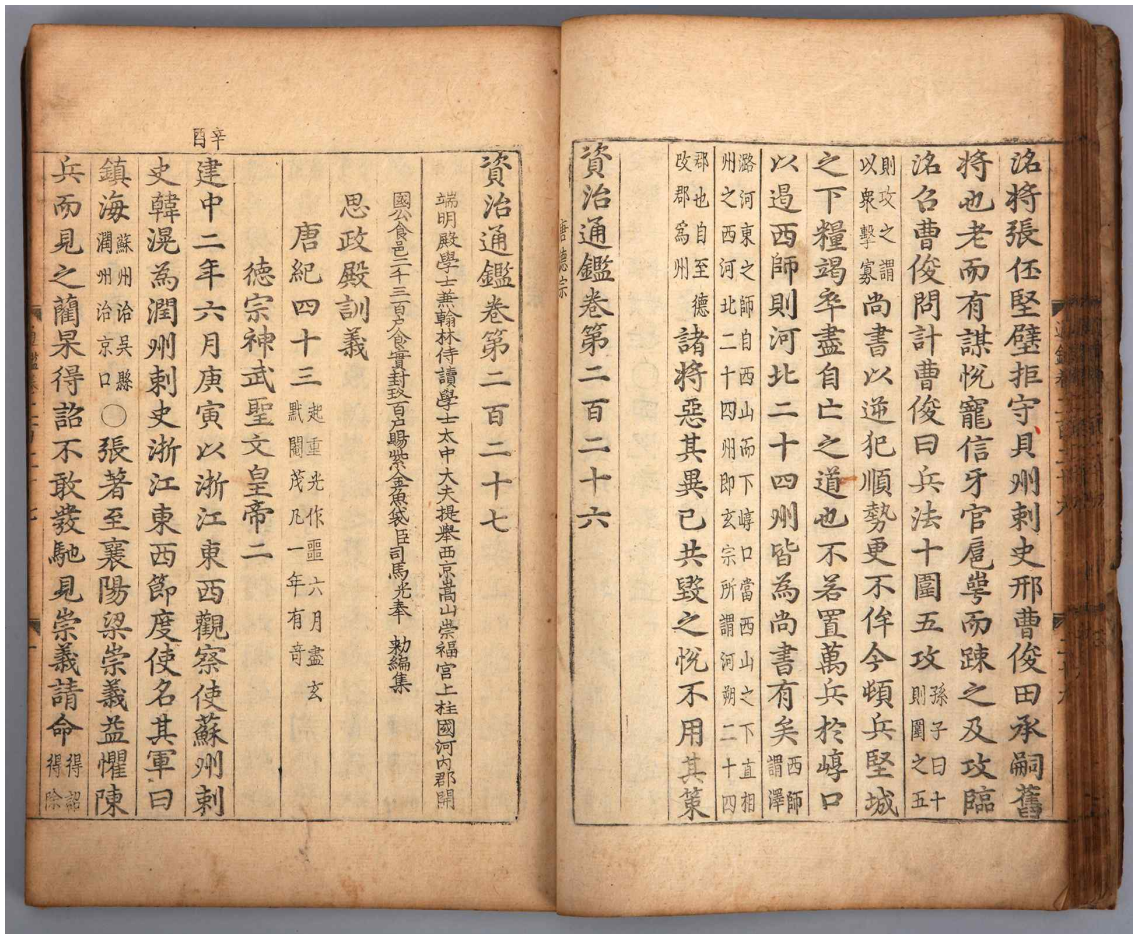 洺將張伾堅壁拒守貝州刺史邢曹俊田承嗣舊
將也老而有謀悅寵信牙官扈崿而踈之及攻臨
洺召曹俊問計曹俊曰兵法十圍五攻孫子曰十則圍之五
則攻之謂以衆擊寡尚書以逆犯順勢更不侔今頓兵堅城
之下糧竭卒盡自亡之道也不若置萬兵於崞口
以遏西師則河北二十四州皆為尚書有矣西師謂澤
潞河東之師自西山而下崞口當西山之下直相州之西河北二十四州即玄宗所謂河朔二十四
郡也自至德改郡為州諸將惡其異己共毀之悅不用其策
資治通鑑卷第二百二十六
唐德宗
資治通鑑卷第二百二十七
端明殿學士兼翰林侍讀學士太中大夫提舉西京嵩山崇福宮上柱國河內郡開
國公食邑二千三百戶食實封玖百戶賜紫金魚袋臣司馬光奉 勑編集
思政殿訓義
唐紀四十三起重光作噩六月盡玄黓閹茂凡一年有奇
德宗神武聖文皇帝二
辛酉
建中二年六月庚寅以浙江東西觀察使蘇州刺
史韓滉為潤州刺史浙江東西節度使名其軍曰
鎮海蘇州治吳縣潤州治京口〇張著至襄陽梁崇義益懼陳
兵而見之藺杲得詔不敢發馳見崇義請命得詔得除